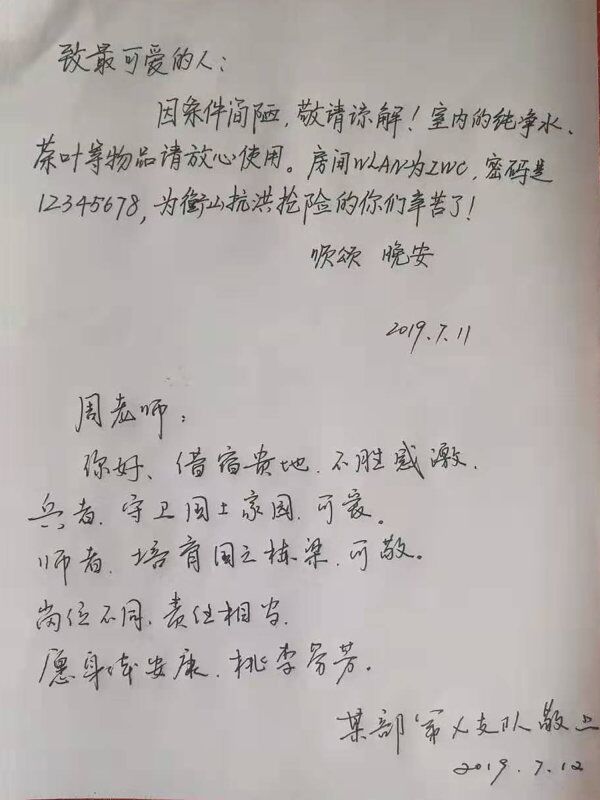 致最可爱的人：
因条件简陋，敬请谅解！室内的纯净水、
茶叶等物品请放心使用。房间WLAN为ZWC，密码是
12345678，为衡山抗洪抢险的你们辛苦了！
顺颂 晚安
2019.7.11
周老师：
你好、借宿贵地，不胜感激，
兵者，守卫国土家园，可爱。
师者，培育国之栋梁，可敬。
岗位不同，责任相当，
愿身体安康，桃李芬芳。
某部第X支队敬上
2019.7.12